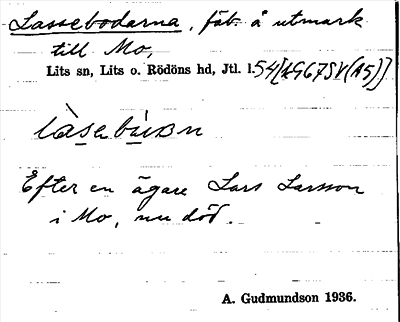 Lassebodarna, fäb. å utmark
till Mo,
Lits sn, Lits o. Rödöns hd, Jtl. l.
làsebùʙn
Efter en ägare Lars Larsson
i Mo, nu död.
A. Gudmundson 1936.